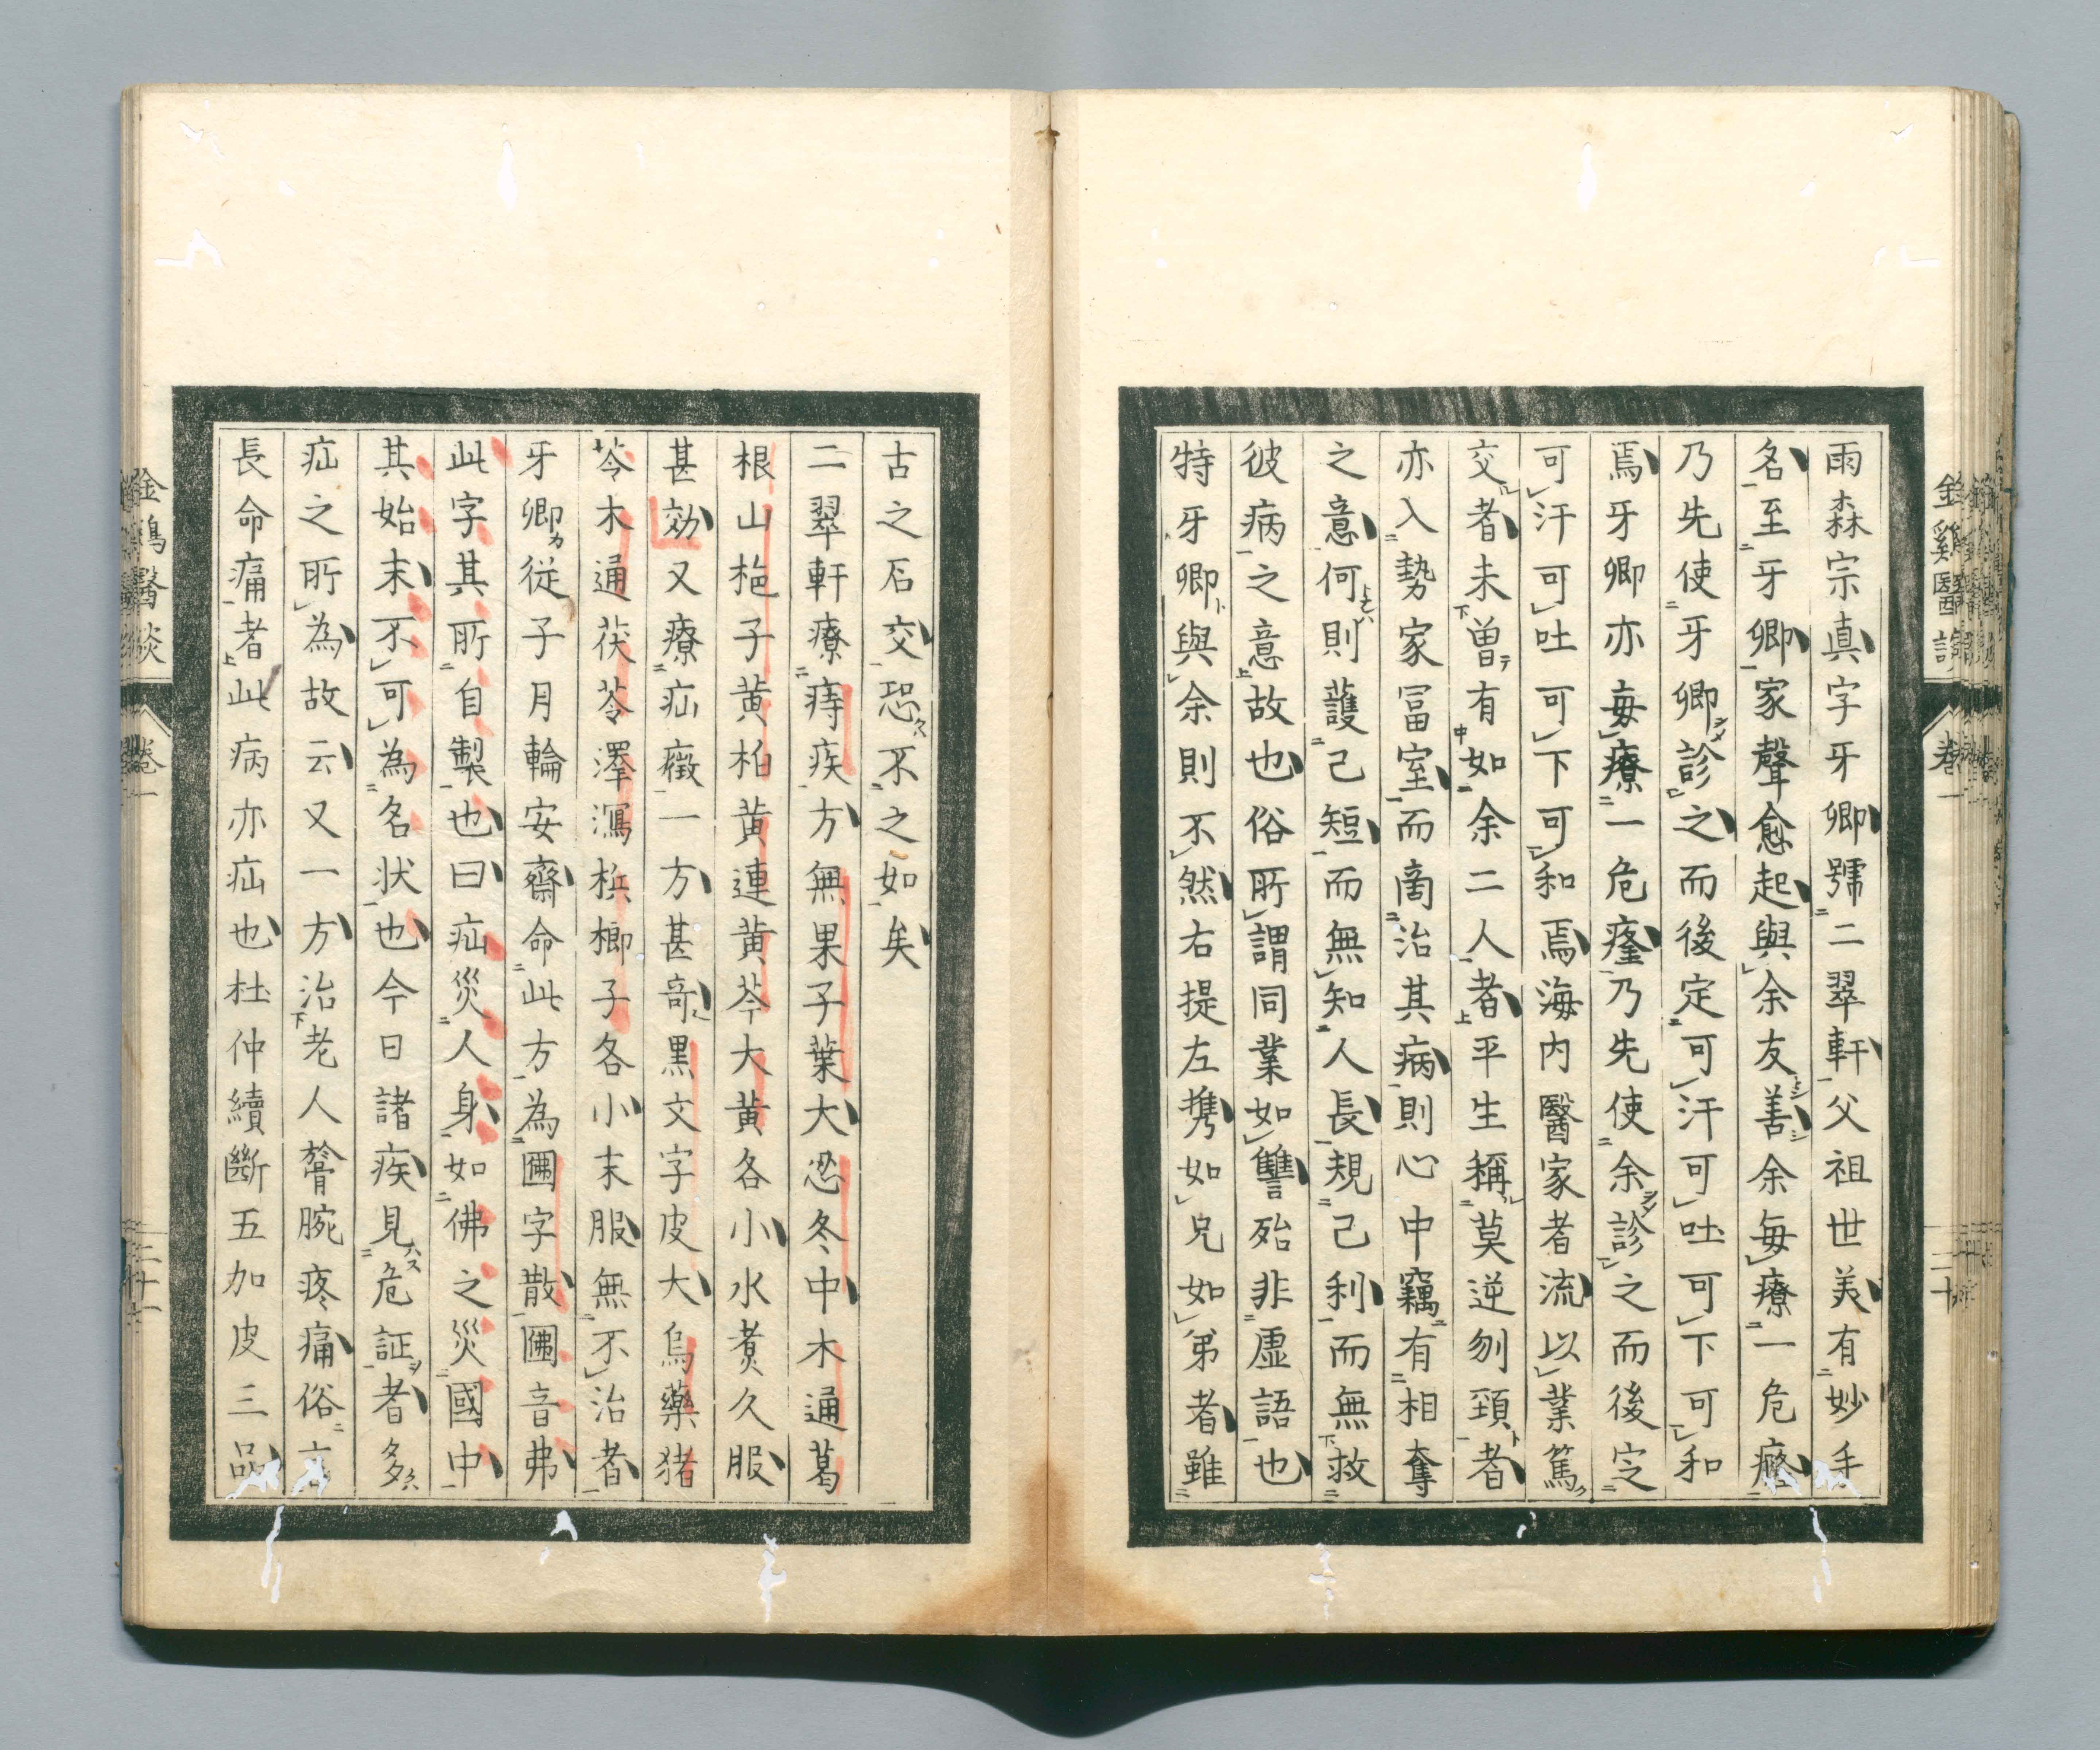 雨森宗真字牙卿號二翠軒父祖世美有妙手
名至牙卿家聲愈起與余友善余毎療一危癃
乃先使牙卿診之而後定可汗可吐可下可和
焉牙卿亦毎療一危癃乃先使余診之而後定
可汗可吐可下可和焉海内醫家者流以業篤
交者未曽有如余二人者平生稱莫逆刎頚者
亦入勢家冨室而啇治其病則心中竊有相奪
之意何則護己短而無知人長規己利而無救
彼病之意故也俗所謂同業如讐殆非虚語也
特牙卿與余則不然右提左携如兄如弟者雖
金雞醫談
卷一
二十
古之石交恐不之如矣
二翠軒療痔疾方無果子葉大忍冬中木通葛
根山梔子黄柏黄連黄芩大黄各小水煮久服
甚効又療疝癥一方甚竒黒文字皮大烏藥猪
苓木通茯苓澤瀉梹榔子各小末服無不治者
牙卿從子月輪安齋命此方為圃字散圃音弗
此字其所自製也曰疝災人身如佛之災國中
其始末不可為名状也今日諸疾見危証者多
疝之所為故云又一方治老人膂腕疼痛俗
長命痛者此病亦疝也杜仲續斷五加皮三品
金鷄醫談
卷一
二十一